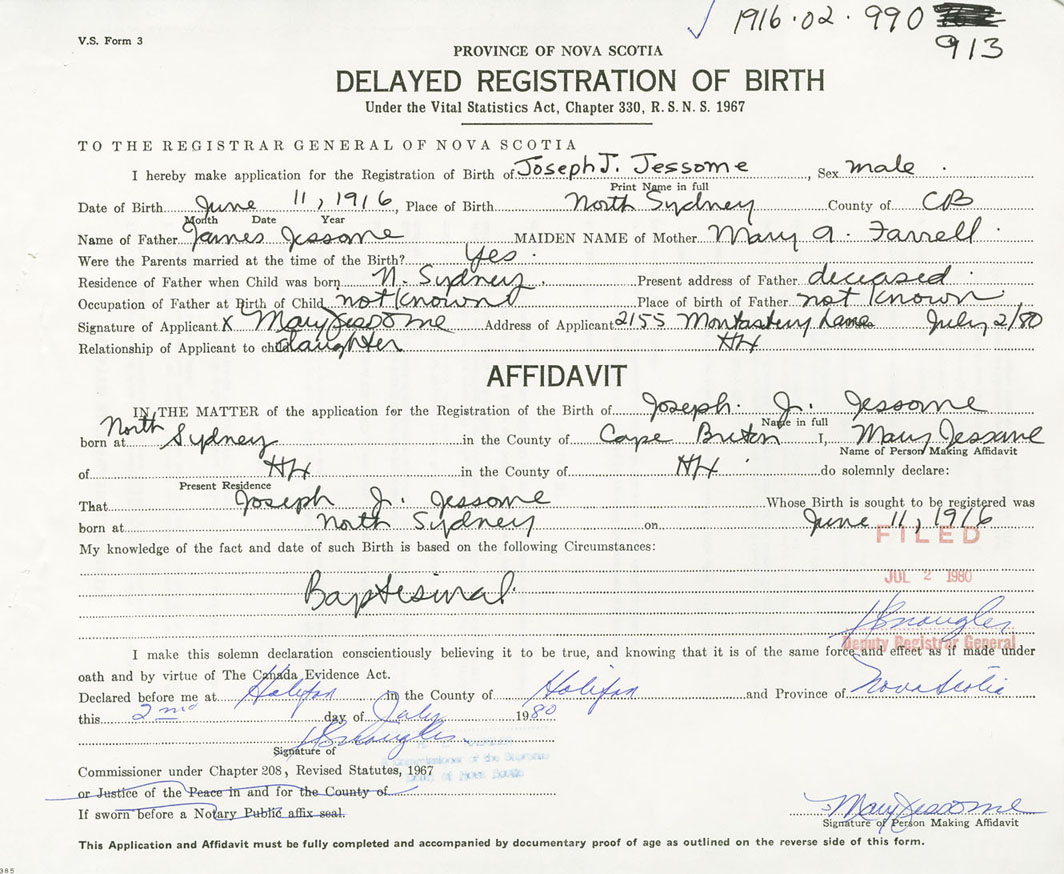 ✓ 1916.02.990
913
V.S. Form 3
PROVINCE OF NOVA SCOTIA
DELAYED REGISTRATION OF BIRTH
Under the Vital Statistics Act, Chapter 330, R.S.N.S. 1967
TO THE REGISTRAR GENERAL OF NOVA SCOTIA
I hereby make application for the Registration of Birth of Joseph J. Jessome, Sex male.
Print Name in full
Date of Birth June 11, 1916, Place of Birth North Sydney County of CB
Month Date Year
Name of Father James Jessome MAIDEN NAME of Mother Mary A. Farrell.
Were the Parents married at the time of the Birth? Yes.
Residence of Father when Child was born N. Sydney. Present address of Father deceased.
Occupation of Father at Birth of Child not Known Place of birth of Father not Known
Signature of Applicant X Mary Jessome Address of Applicant 2155 Monastery Lane July 2/80
Relationship of Applicant to child daughter Hfx
AFFIDAVIT
IN THE MATTER of the application for the Registration of Birth of Joseph. J. Jessome
Name in full
born at North Sydney in the County of Cape Breton I, Mary Jessome
Name of Person Making Affidavit
of Hfx in the County of Hfx. do solemnly declare:
Present Residence
That Joseph J. Jessome Whose Birth is sought to be registered was
born at North Sydney on June 11, 1916
FILED
My knowledge of the fact and date of such Birth is based on the following Circumstances:
JUL 2 1980
Baptesimal.
Deputy Registrar General
I make this solemn declaration conscientiously believing it to be true, and knowing that it is of the same force and effect as if made under
oath and by virtue of The Canada Evidence Act.
Declared before me at Halifax in the County of Halifax and Province of Nova Scotia
this 2nd day of July 1980
Signature of
Commissioner of the Supreme
Court of Nova Scotia
Commissioner under Chapter 208, Revised Statutes, 1967
or Justice of the Peace in and for the County of
If sworn before a Notary Public affix seal.
Mary Jessome
Signature of Person Making Affidavit
This Application and Affidavit must be fully completed and accompanied by documentary proof of age as outlined on the reverse side of this form.
385